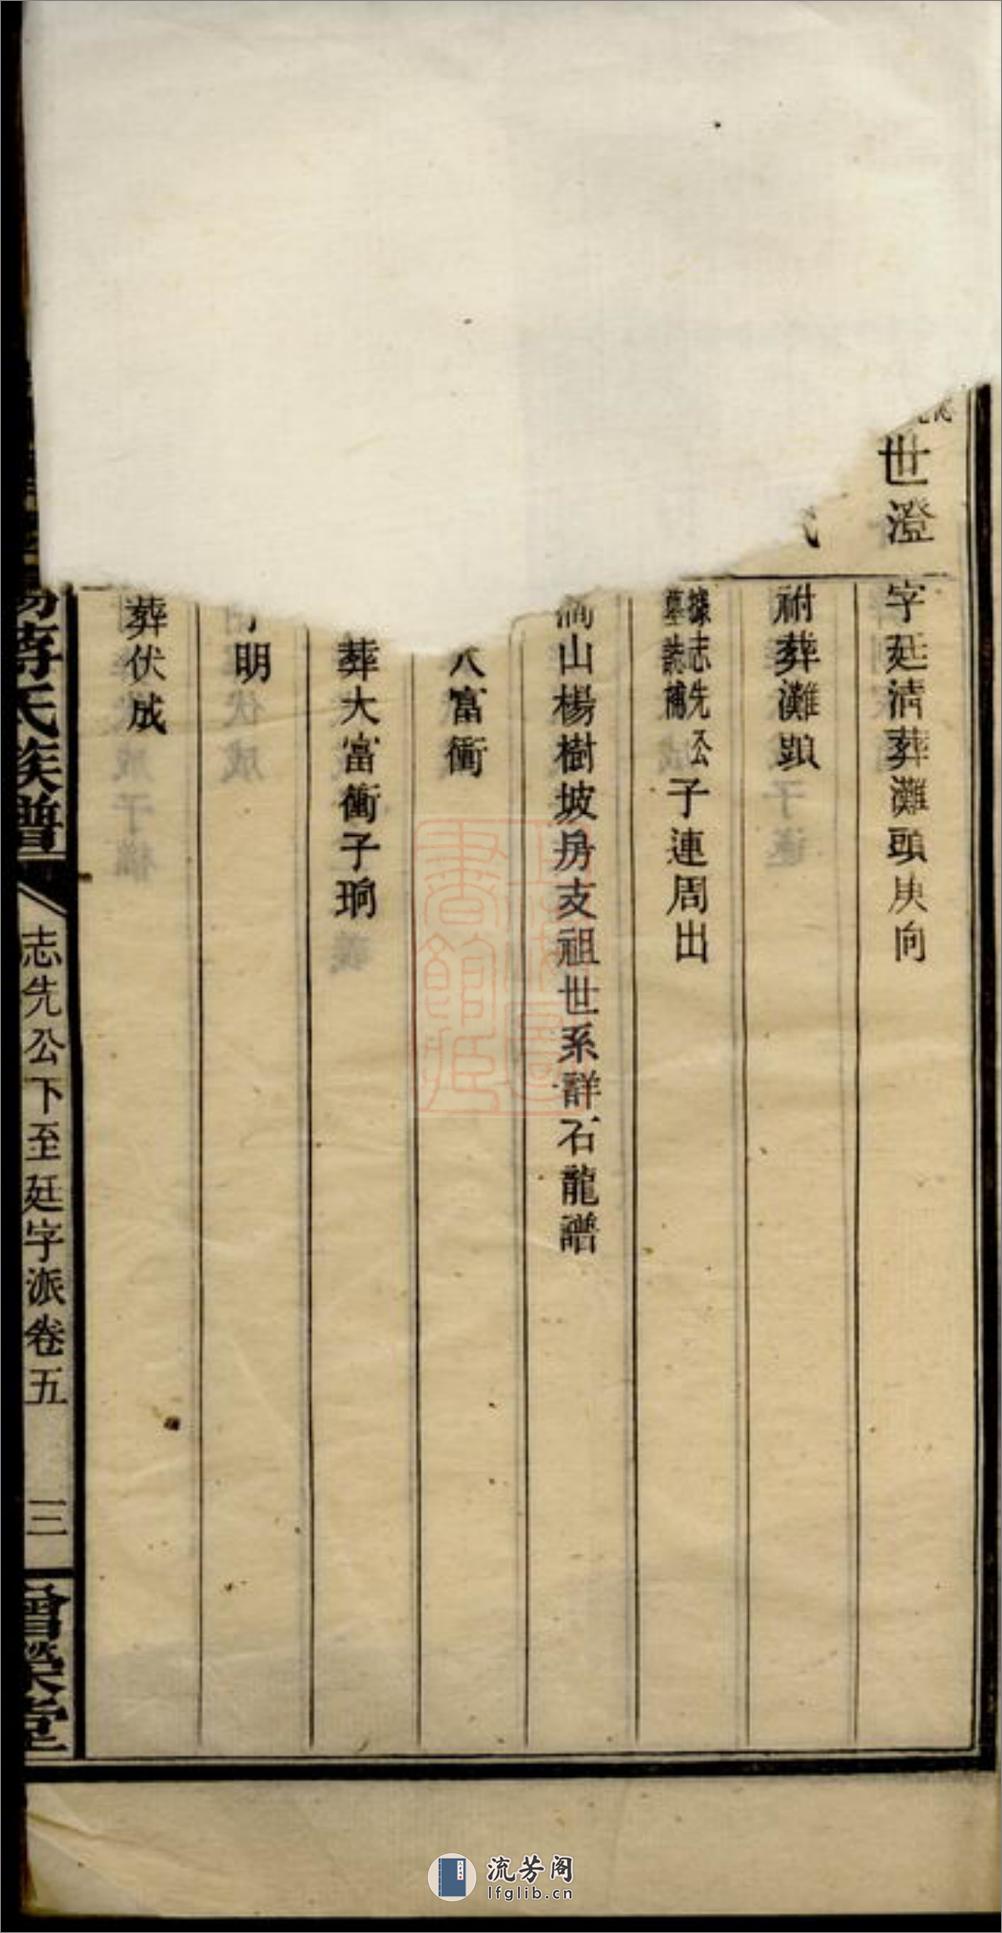 世澄
字廷清葬灘頭庚向
祔葬灘頭
據志先公
墓誌補
子連周出
山楊樹坡房支祖世系詳石龍譜
富衝
葬大富衝子珦
明
葬伏成
蔣氏族譜
志先公下至廷字派卷五
三
曾榮堂
上海圖書館藏
流芳阁
lfglib.cn